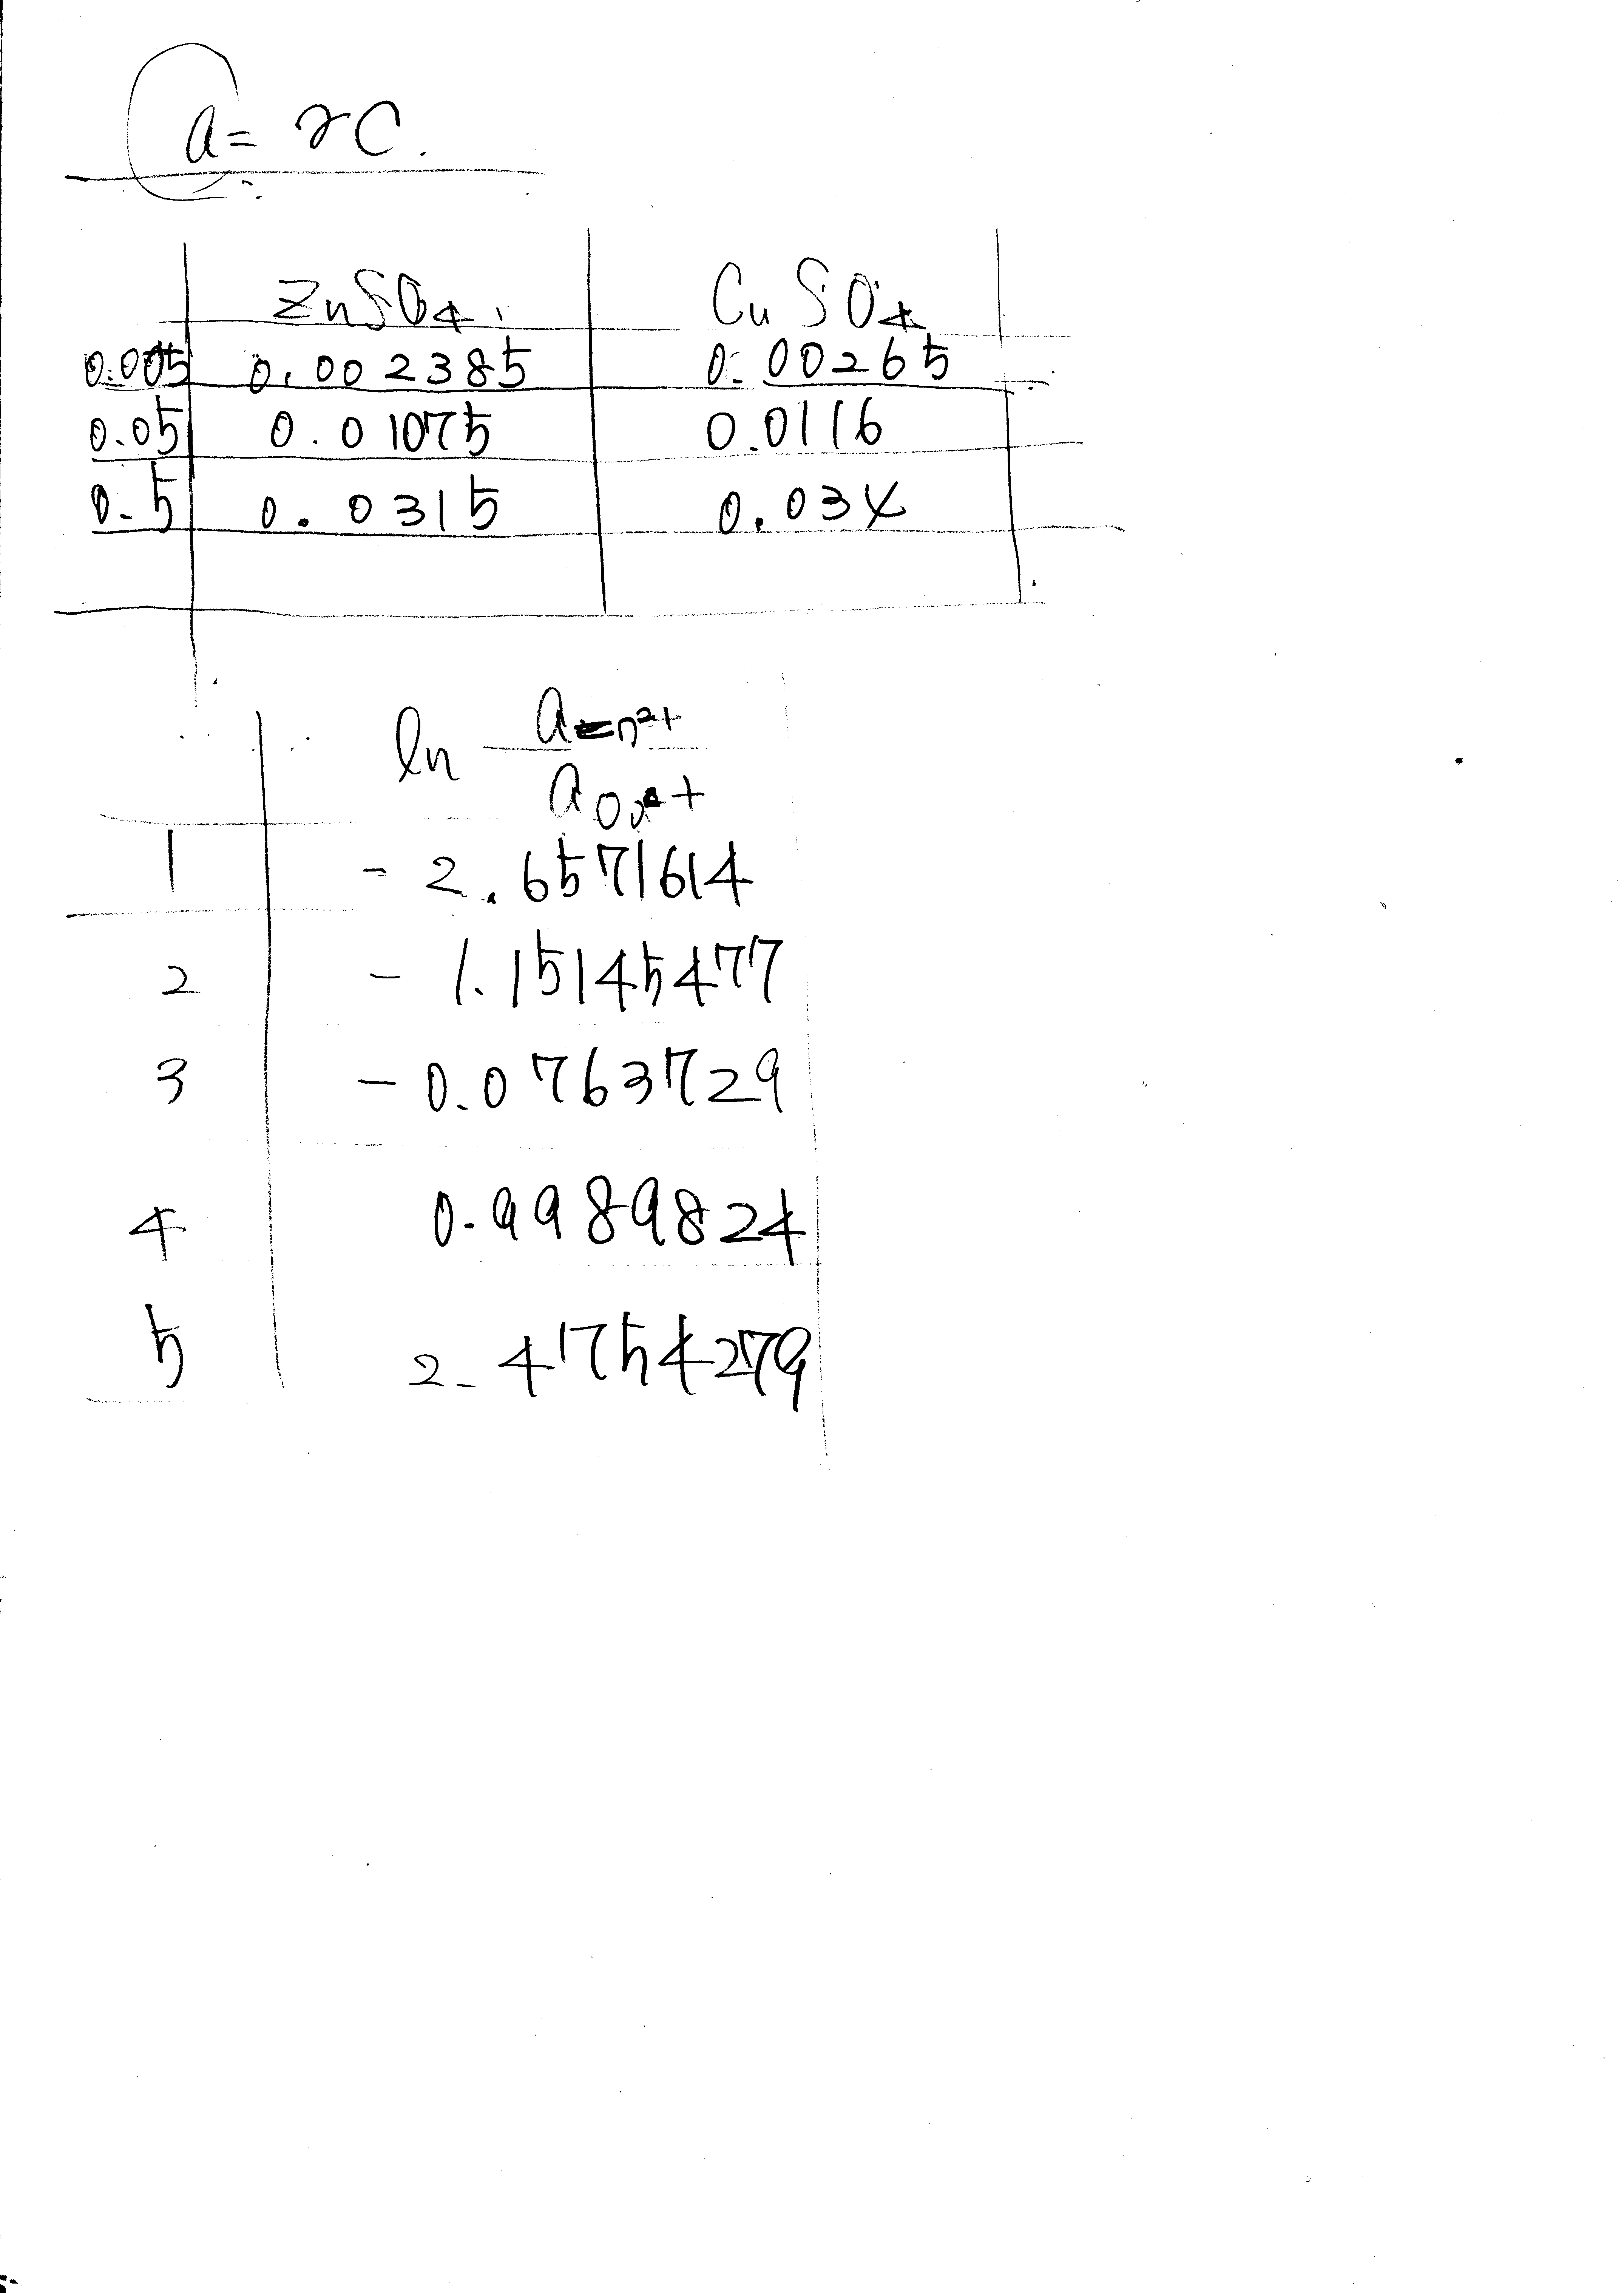 a = γC.
ZnSO4 CuSO4
0.005 0.002385 0.00265
0.05 0.01075 0.0116
0.5 0.0315 0.034
ln aZn2+
aCu2+
1 -2.6571614
2 -1.15145477
3 -0.0763729
4 0.9989824
5 2.41754279